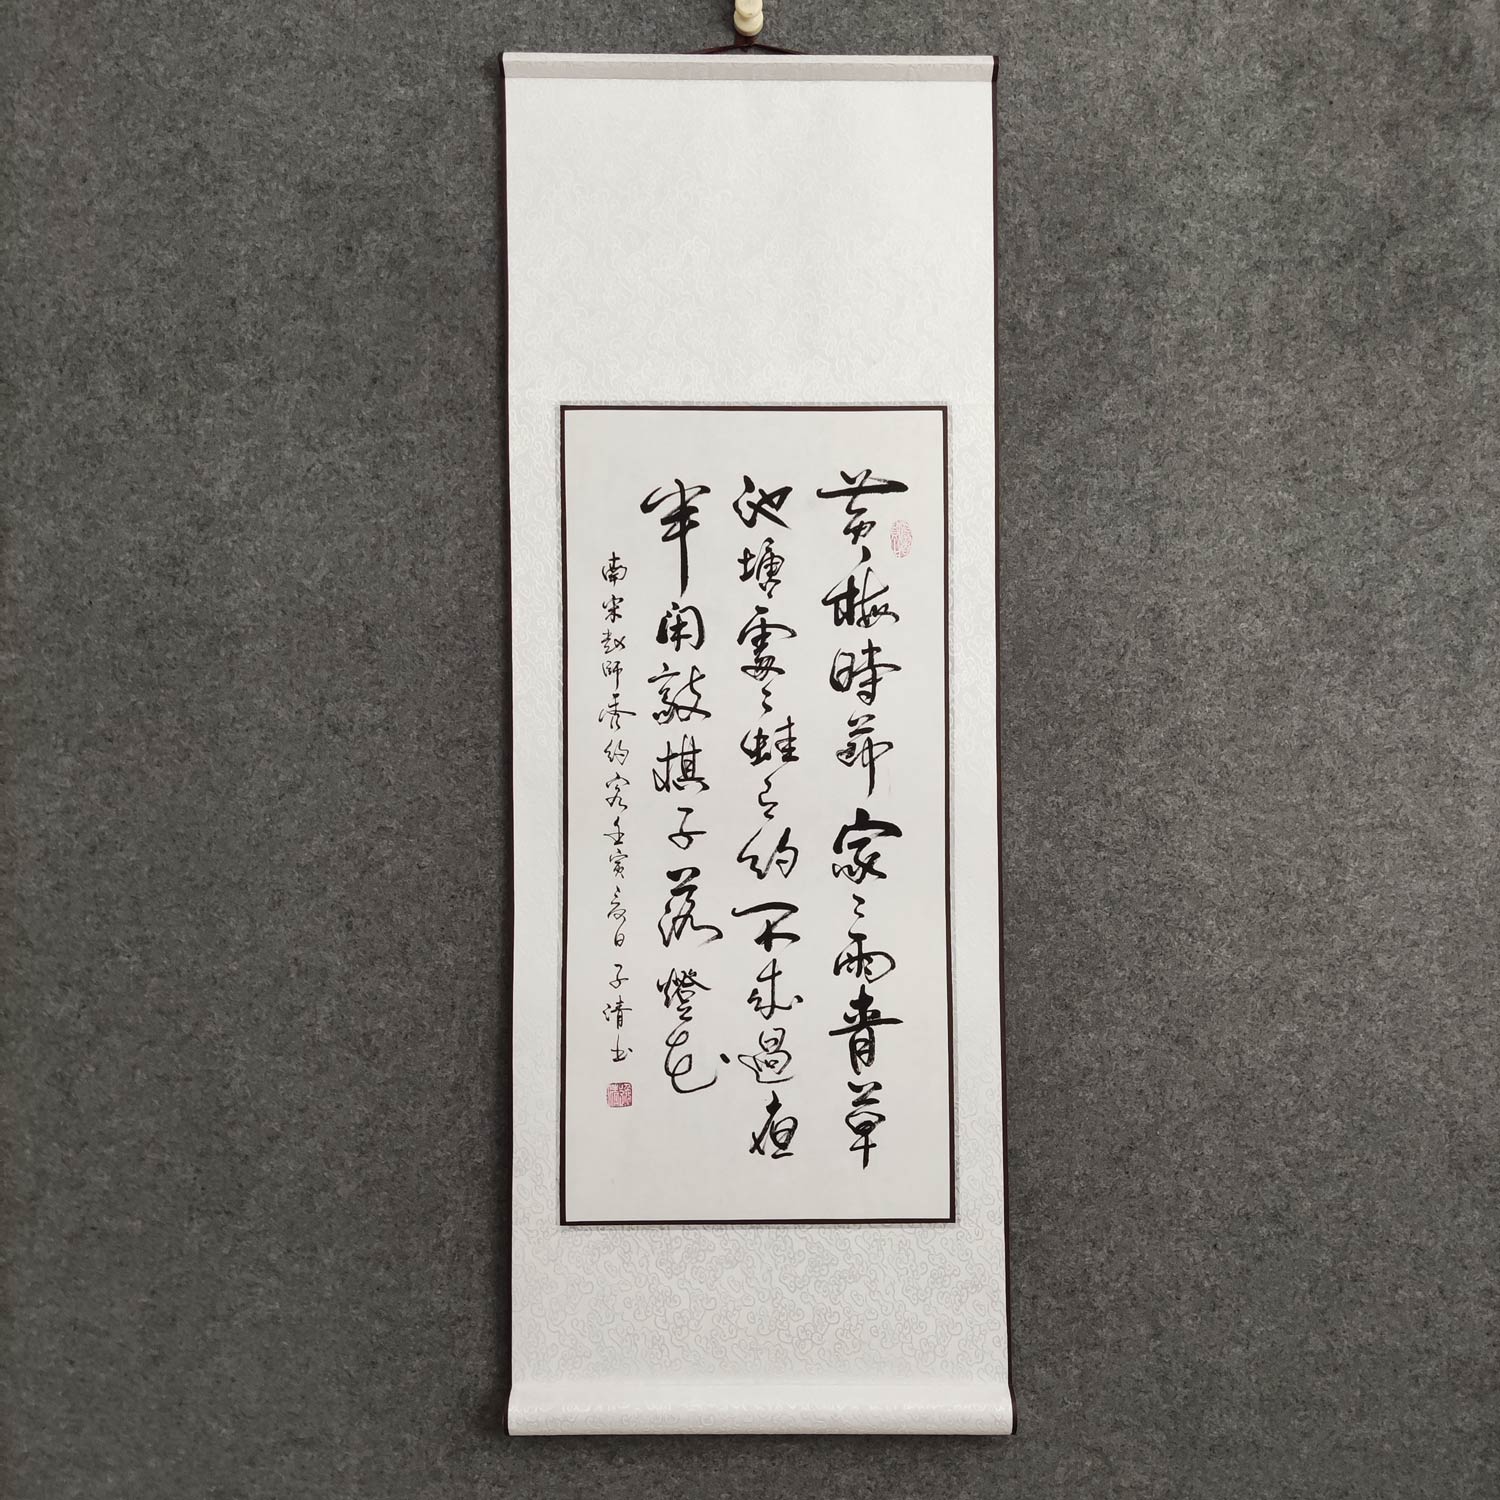 黄梅時節家〻雨青草
池塘處〻蛙有約不来過夜
半闲敲棋子落燈花
南宋赵師秀约客壬寅夏日子清书